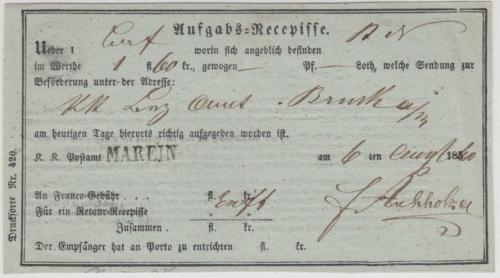 Aufgabs-Recepisse.
Ueber 1 Brief worin sich angeblich befinden
im Werthe 1 fl. 60 kr., gewogen — Pf. — Loth, welche Sendung zur
Beförderung unter der Adresse:
KK Amt Bruck a/M
am heutigen Tage hierorts richtig aufgegeben worden ist.
K. K. Postamt MAREIN am 6 ten August 1850
An Franco-Gebühr . . . fl. kr.
Für ein Retour-Recepisse " "
Zusammen . fl. kr.
Der Empfänger hat an Porto zu entrichten fl. kr.
Druckforte Nr. 420.